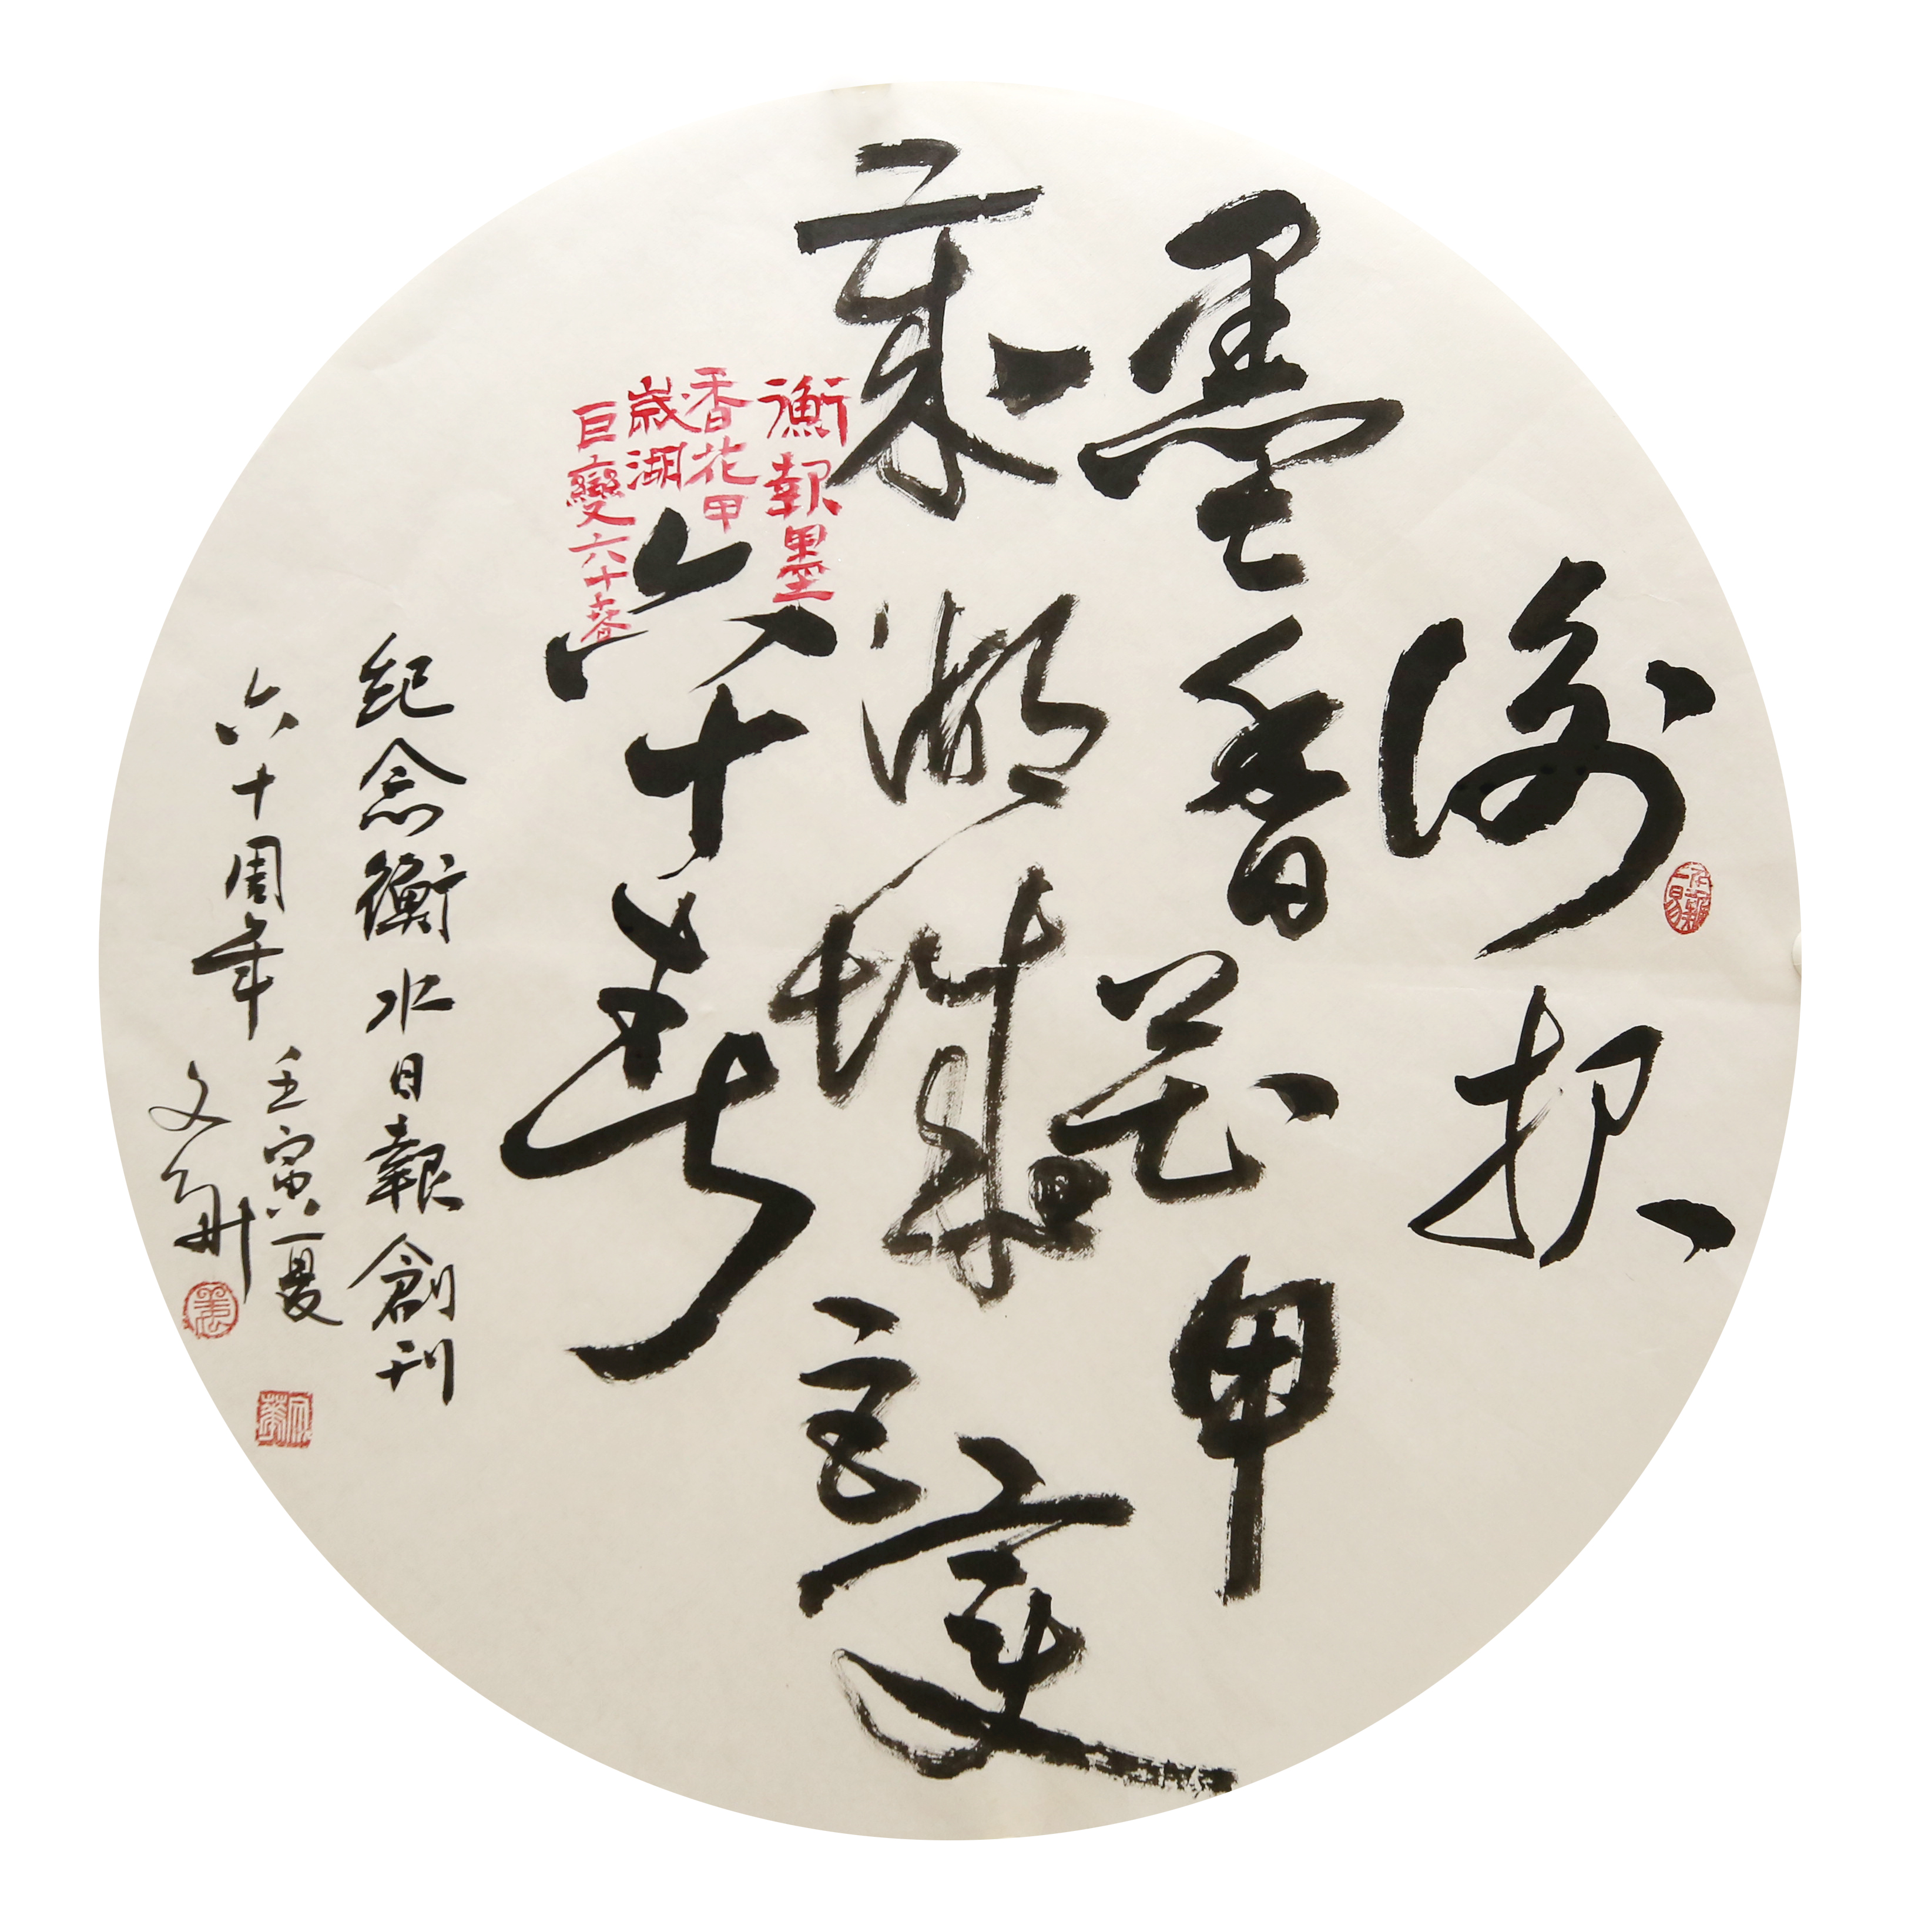 衡报
墨香花甲
歲湖城巨變
六十春
衡報墨
香花甲
歲湖
巨變六十春
紀念衡水日報創刊
六十周年 壬寅夏
文